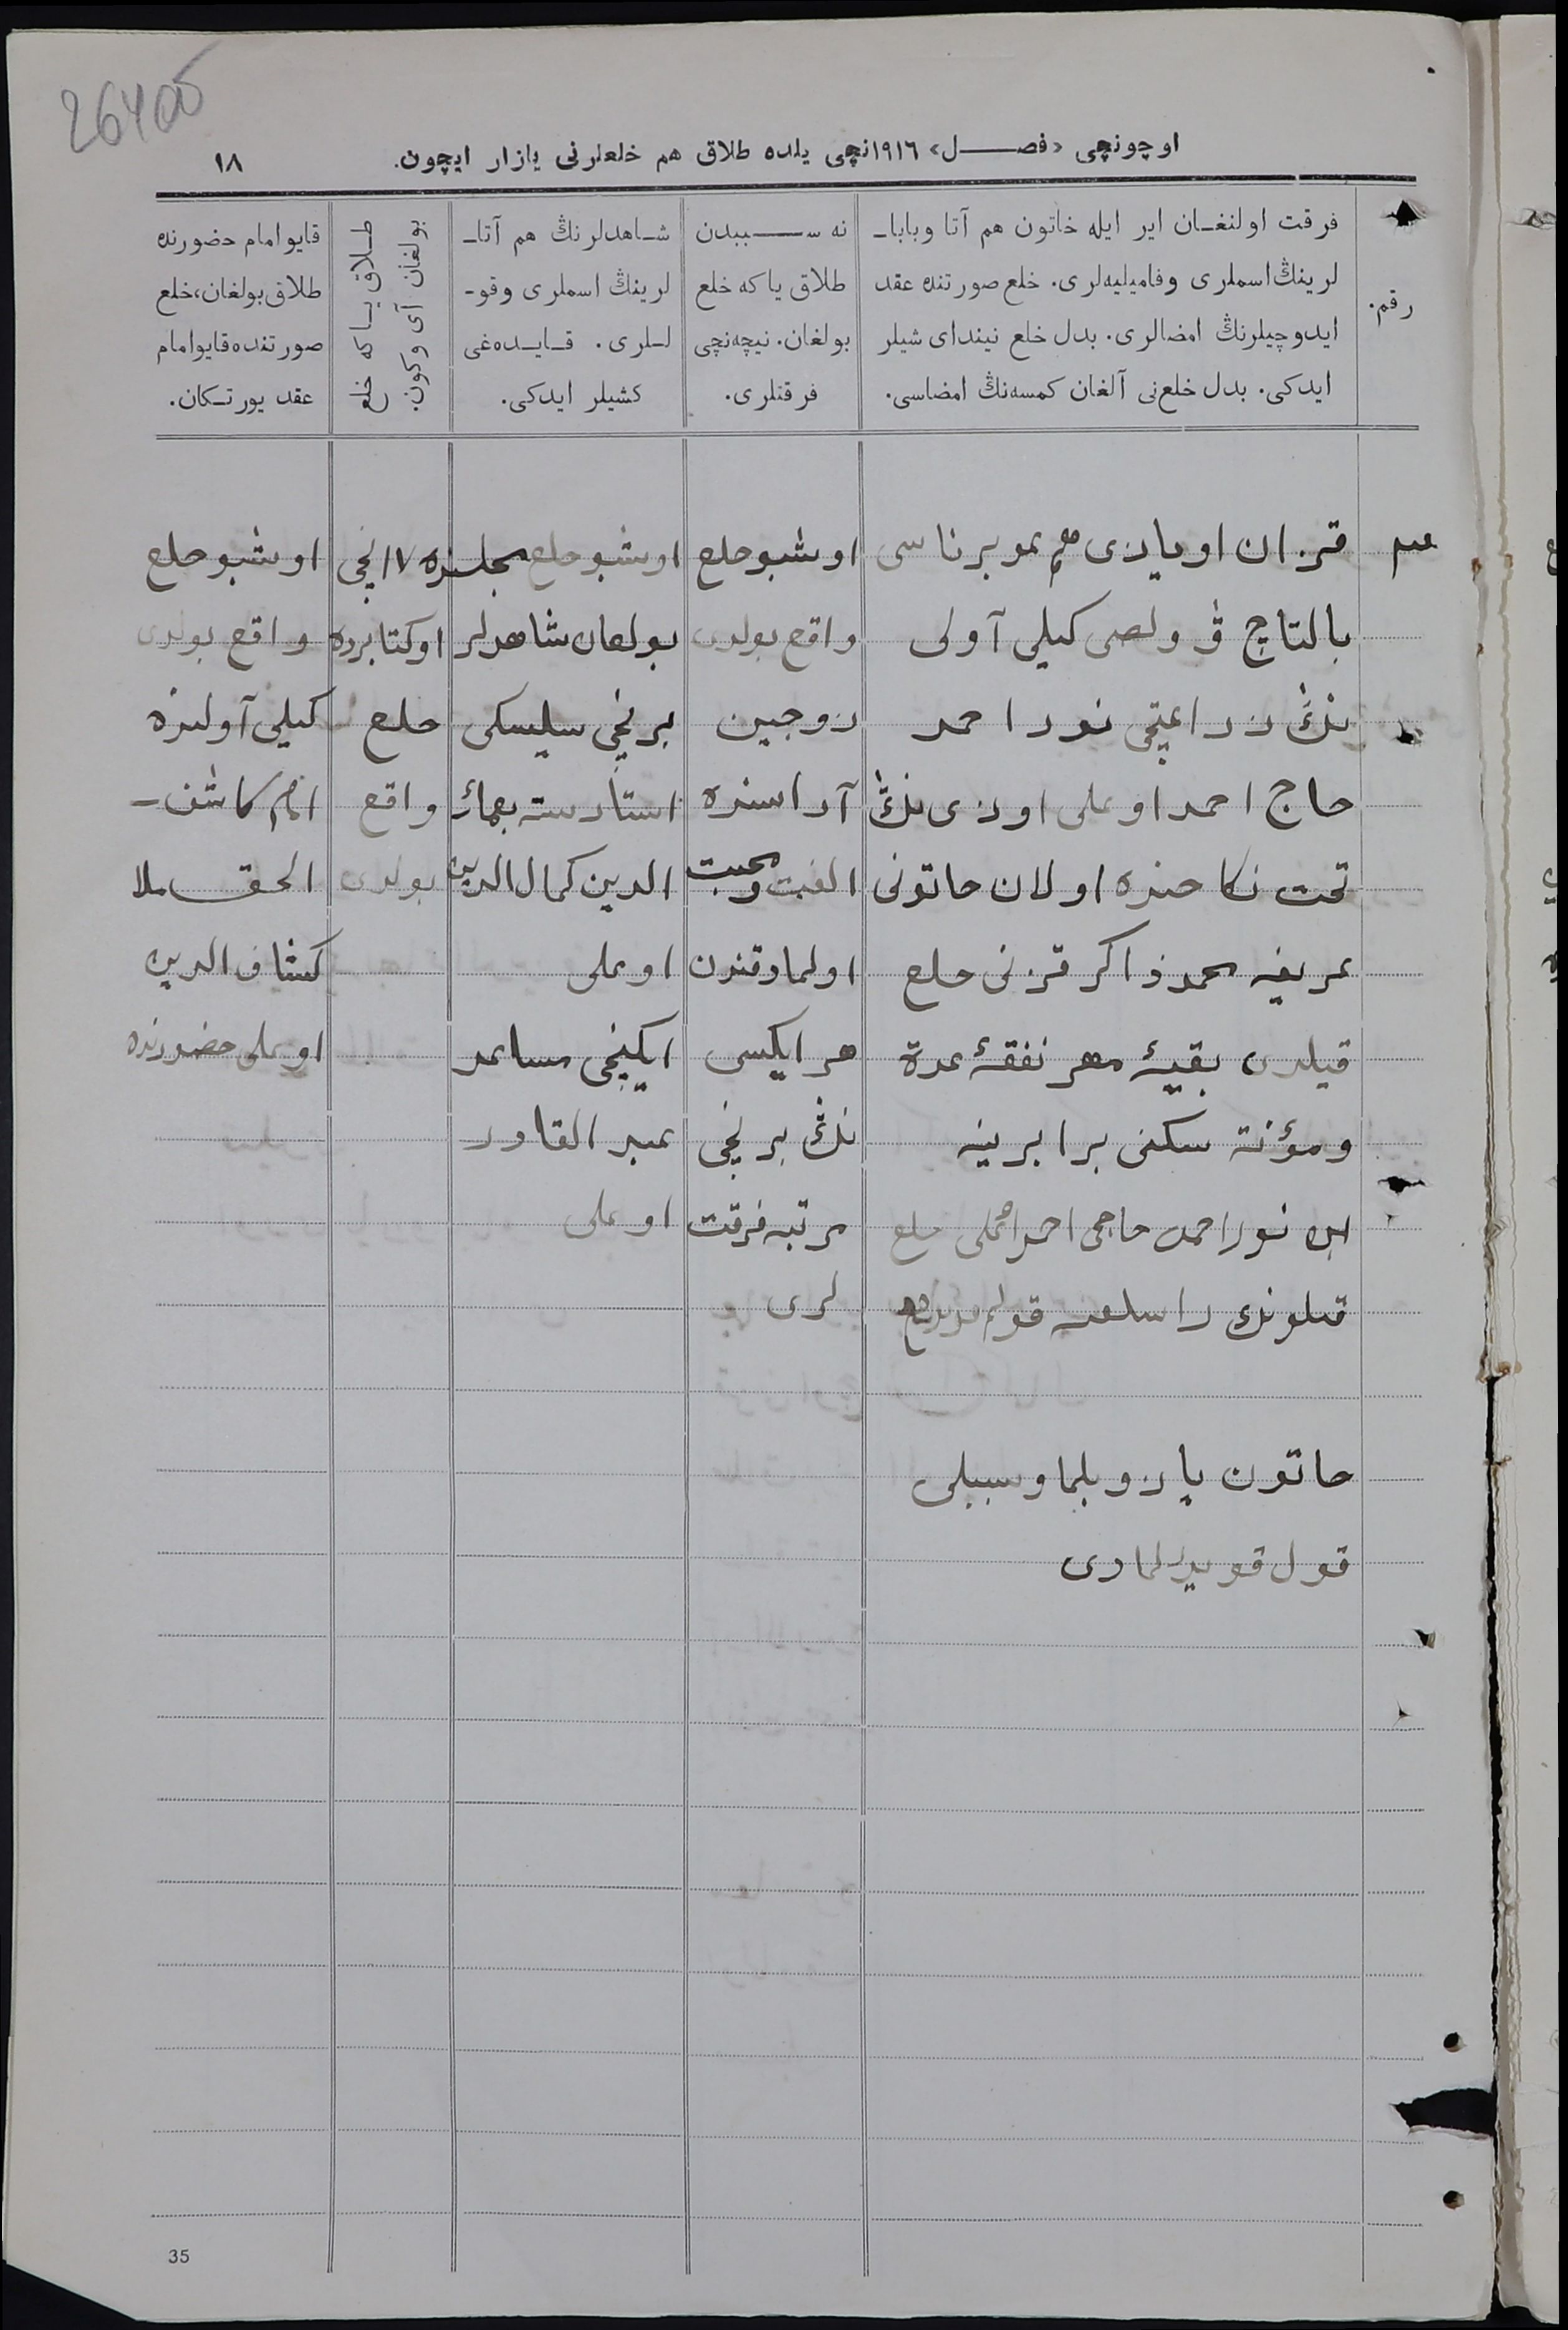 26400
اوچونچی «فصل» ١٩١٦نچی یلده طلاق هم خلعلرنی یازار ایچون.
١٨
رقم.
فرقت اولنغان ایر ایله خاتون هم آتا وبابا-
لرینڭ اسملری وفامیلیه‌لری. خلع صورتنده عقد
ایدوچیلرنڭ امضالری. بدل خلع نیندای شیلر
ایدکی. بدل خلع‌نی آلغان کمسه‌نڭ امضاسی.
نه سببدن
طلاق یا که خلع
بولغان. نیچه‌نچی
فرقتلری.
شاهدلرنڭ هم آتا-
لرینڭ اسملری وقو-
لـلری. قـایـده‌غی
کشیلر ایدکی.
طلاق یا که خلع
بولغان آی وکون.
قایو امام حضورنده
طلاق بولغان، خلع
صورتنده قایو امام
عقد یورتکان.
قزان اویازی هم
بالتاچ ڤولصی کیلی آولی
ننڭ زراعتچی نور احمد
حاج احمد اوغلی اوزی ننڭ
تحت نکاحنده اولان خاتونی
عریفه محمد ذاکر قزنی خلع
قیلدی بقیۀ مهر نفقۀ عدة
ومؤنة سکنی برابرینه
من نور احمد حاجی احمد اوغلی خلع
خاتون یازو بلماو سببلی
قول قویدلمادی
اوشبو خلع
واقع بولدی
زوجین
آراسنده
الفت ومحبت
اولماوقندن
هر ایکسی
ننڭ برنچی
مرتبه فرقت
لری
اوشبو خلع مجلسنده
بولغان شاهدلر
برنچی سیلسکی
استارسته بهاء
الدین کمال الدین
اوغلی
ایکنچی مساعد
عبد القادر
اوغلی
١٧نچی
اوکتابرده
خلع
واقع
بولدی
اوشبو خلع
واقع بولدی
کیلی آولنده
امام کاشف-
الحق ملا
کشاف الدین
اوغلی حضورنده
35